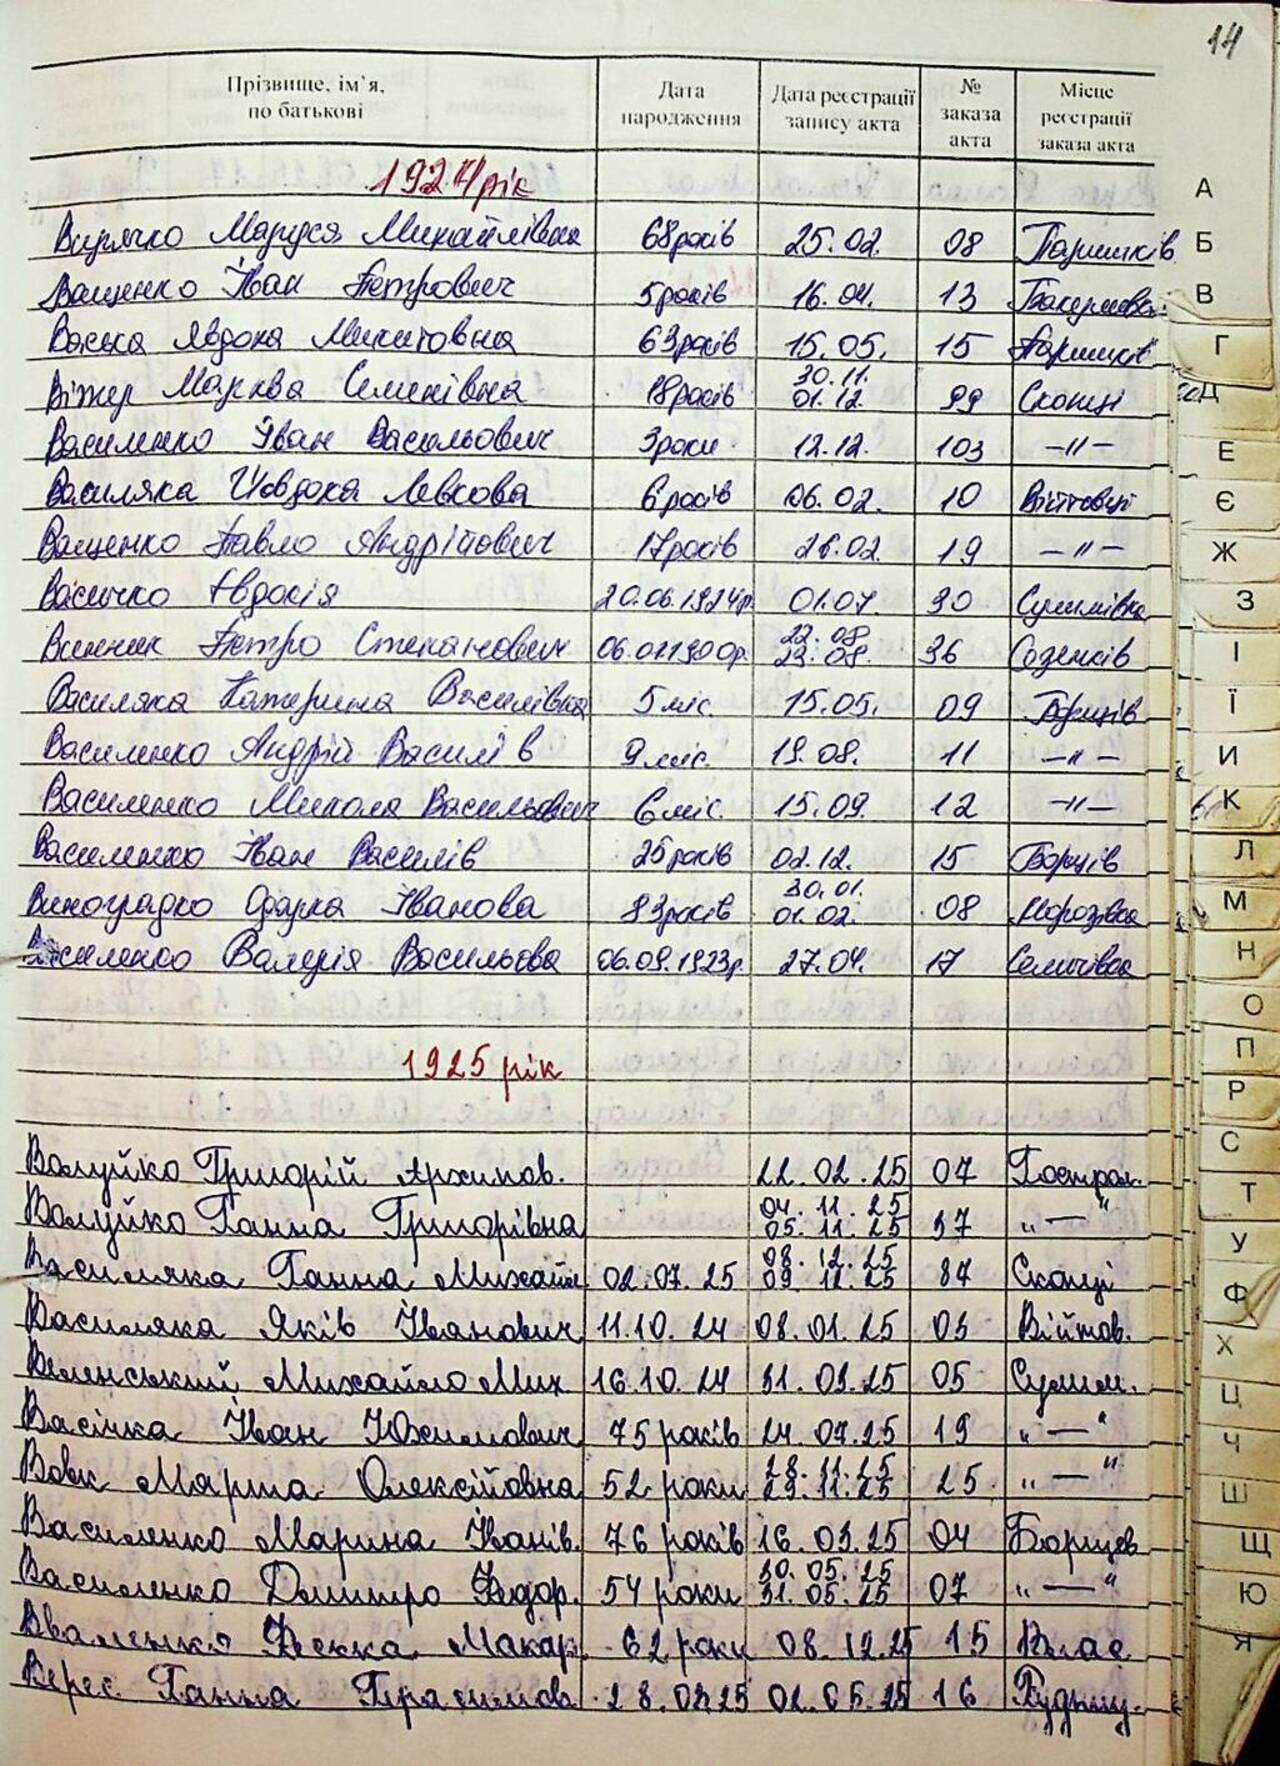 14
Прізвище, ім’я, по батькові Дата народження Дата реєстрації запису акта № заказа акта Місце реєстрації заказа акта
1924 рік
Маруся Михайлівна 68 років 25.02. 08 Паришків
Ващенко Іван Петрович 5 років 16.04. 13
Васька Явдоха Микитовна 63 років 15.05. 15 Паришків
Вітер Марква Семенівна 18 років 30.11. 01.12. 99 Скопці
Василенко Іван Васильович 3 роки 12.12. 103 —"—
Василяка Левкова 6 років 06.02. 10 Війтовці
Ващенко Павло Андрійович 17 років 26.02 19 —"—
Васичко Євдокія 20.06.1924р. 01.07 30 Сулимівка
Винник Петро Степанович 06.01.1900р. 22.08 23.08. 36 Созенків
Василяка Катерина Василівна 5 міс. 15.05. 09 Борщів
Василенко Андрій Василів 9 міс. 19.08. 11 —"—
Василенко Микола Васильович 6 міс. 15.09. 12 —"—
Василенко Іван Василів 25 років 02.12. 15 Борщів
Виноградко Одарка Іванова 83 років 30.01. 01.02. 08 Морозівка
Василенко Валерія Васильова 06.09.1923р. 27.04. 17 Семенівка
1925 рік
Валуйко Григорій Архипов. 22.02.25 07 Гострол.
Валуйко Ганна Григорівна 04.11.25 05.11.25 37 „—"
Василяка Ганна Михайл 02.07.25 08.12.25 09.12.25 87 Скопці
Василяка Яків Іванович 11.10.24 08.01.25 03 Війтов.
Веленський Михайло Мих. 16.10.24 31.03.25 05 Сулим.
Васічка Іван Юхимович 75 років 24.07.25 19 „—"
Вовк Марина Олексійовна 52 роки 28.11.25 29.11.25 25 „—"
Василенко Марина Іванів. 76 років 16.03.25 04 Борщев
Василенко Дмитро Федор. 54 роки 30.05.25 31.05.25 07 „—"
Текка Макар. 62 роки 08.12.25 15 Влас.
Верес Ганна Герасимова 28.04.25 02.05.25 16 Рудниц.
А
Б
В
Г
Д
Е
Є
Ж
З
І
Ї
И
К
Л
М
Н
О
П
Р
С
Т
У
Ф
Х
Ц
Ч
Ш
Щ
Ю
Я